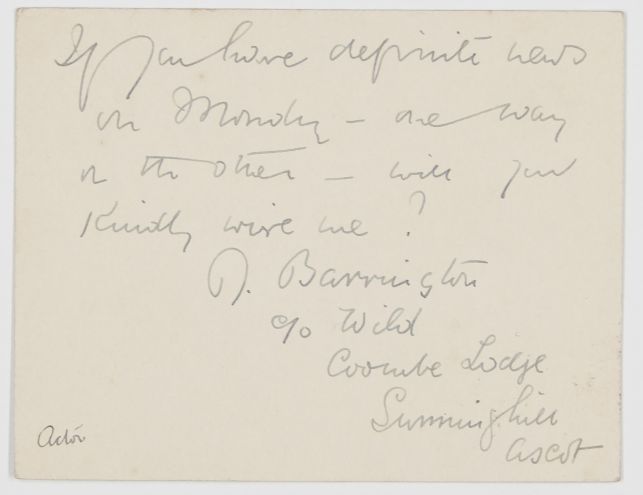 If you have definite news
on Monday – one way
or the other – will you
Kindly wire me?
D. Barrington
c/o Wild
Coombe Lodge
Sunninghill
Ascot
Actor